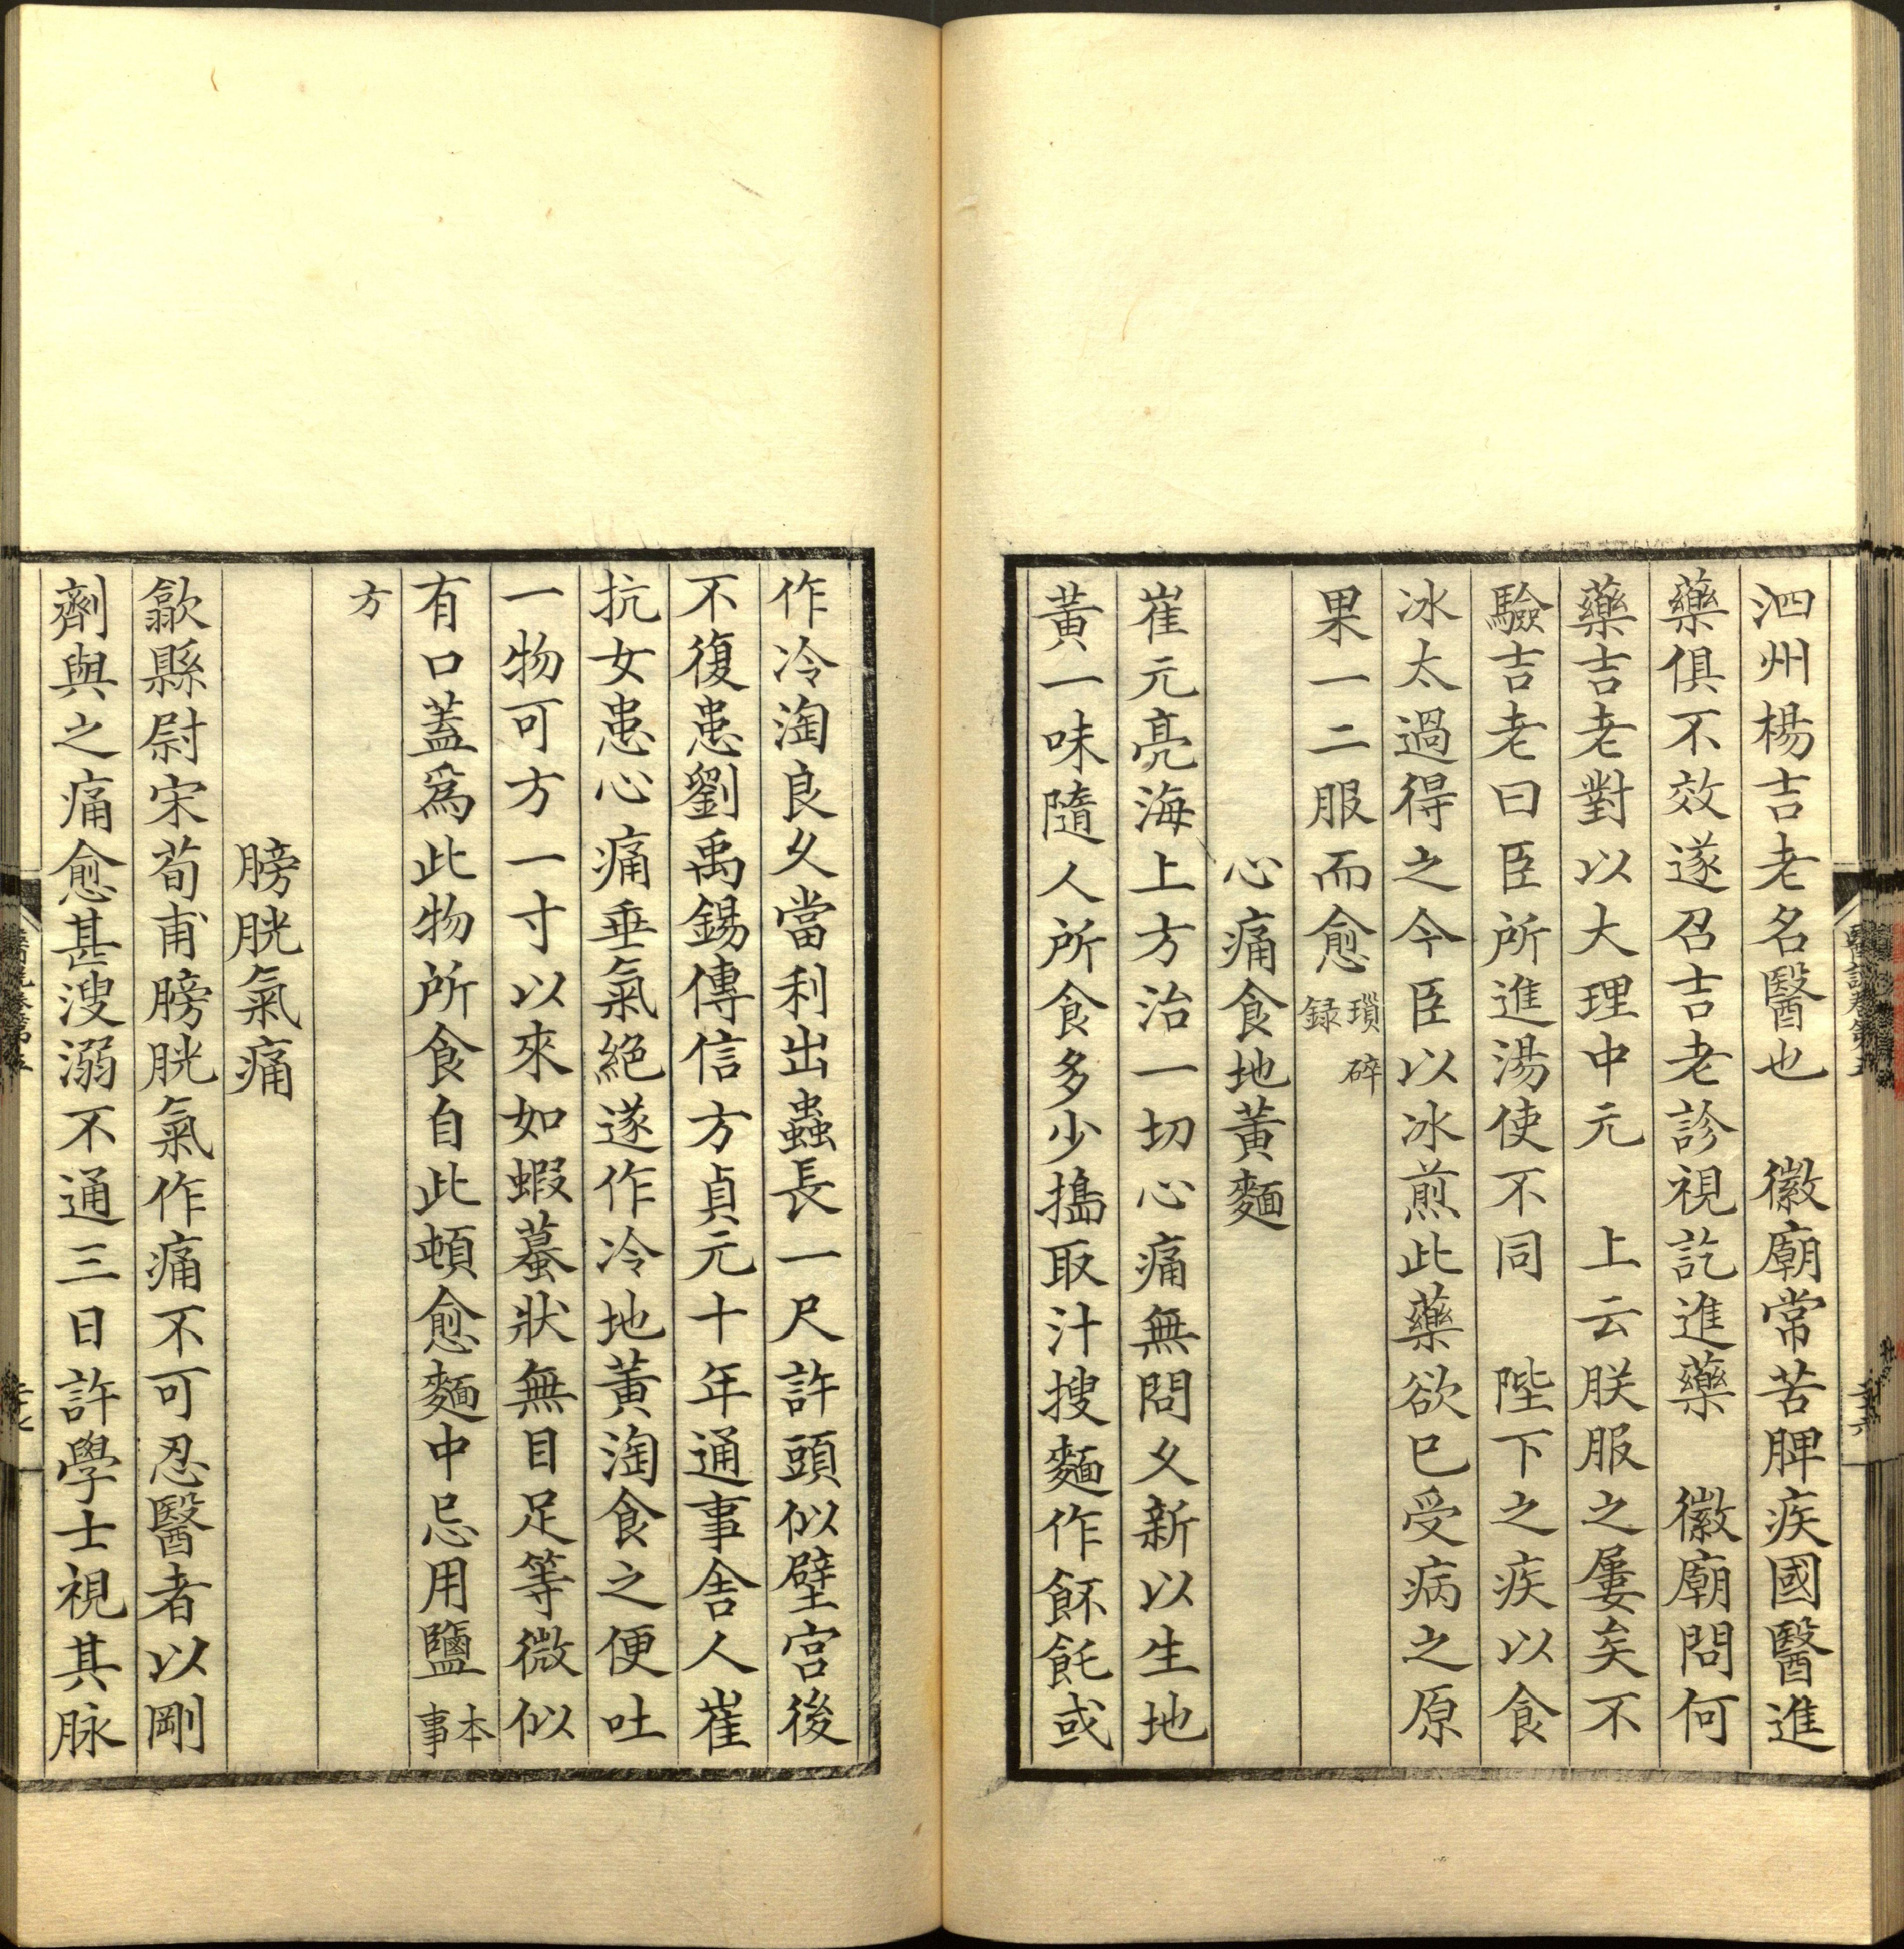 泗州楊吉老名醫也　徽廟常苦脾疾國醫進
藥俱不效遂召吉老診視訖進藥　徽廟問何
藥吉老對以大理中元　上云朕服之屢矣不
驗吉老曰臣所進湯使不同　陛下之疾以食
冰太過得之今臣以冰煎此藥欲已受病之原
果一二服而愈瑣碎録
心痛食地黃麵
崔元亮海上方治一切心痛無問久新以生地
黃一味隨人所食多少搗取汁搜麵作餺飥或
作冷淘良久當利出蟲長一尺許頭似壁宮後
不復患劉禹錫傳信方貞元十年通事舍人崔
抗女患心痛垂氣絕遂作冷地黃淘食之便吐
一物可方一寸以來如蝦蟇狀無目足等微似
有口蓋爲此物所食自此頓愈麵中忌用鹽本事
方
膀胱氣痛
歙縣尉宋荀甫膀胱氣作痛不可忍醫者以剛
劑與之痛愈甚溲溺不通三日許學士視其脉